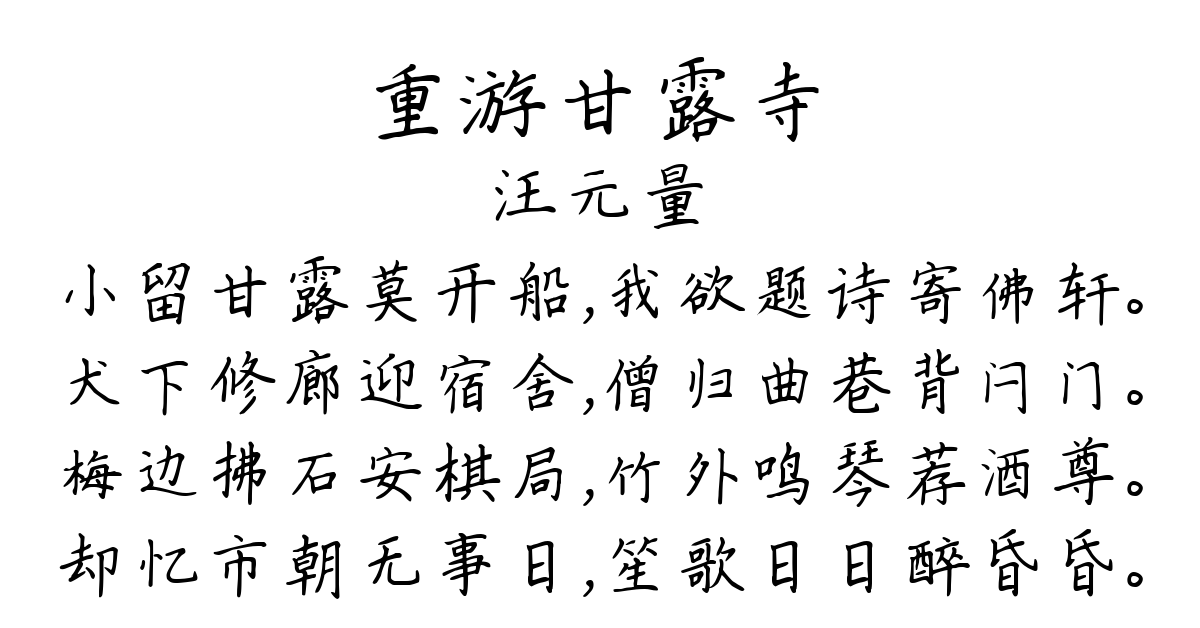 重游甘露寺
汪元量
小留甘露莫开船,我欲题诗寄佛轩。
犬下修廊迎宿舍,僧归曲巷背闩门。
梅边拂石安棋局,竹外鸣琴荐酒尊。
却忆市朝无事日,笙歌日日醉昏昏。